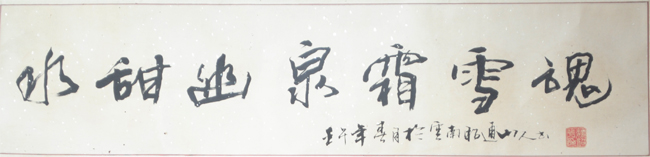 冰甜幽泉霜雪魂
壬午年春月於雲南昭通山人书